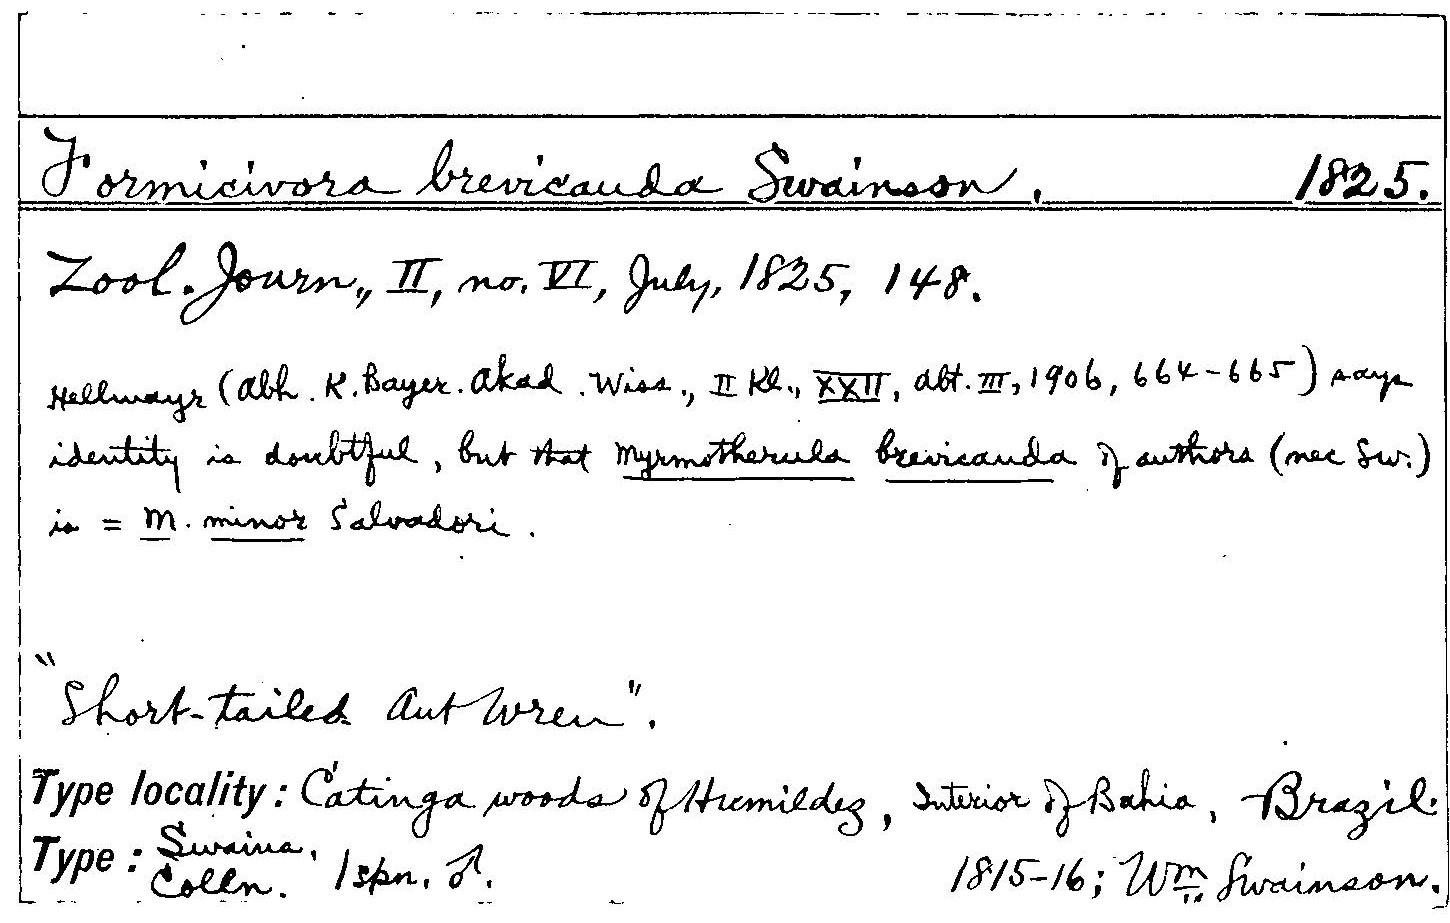 Formicivora brevicauda Swainson. 1825.
Zool. Journ., II, no. VI, July, 1825, 148.
Hellmayr (Abh. K. Bayer. Akad. Wiss., II Kl., XXII, Abt. III, 1906, 664-665) says
identity is doubtful, but that Myrmotherula brevicauda of authors (nec Sw.)
is = M. minor Salvadori.
"Short-tailed Ant Wren".
Type locality: Catinga woods of Humildez, Interior of Bahia, Brazil.
Type: Swains. Colln. 1 spn. ♂. 1815-16; Wm. Swainson.